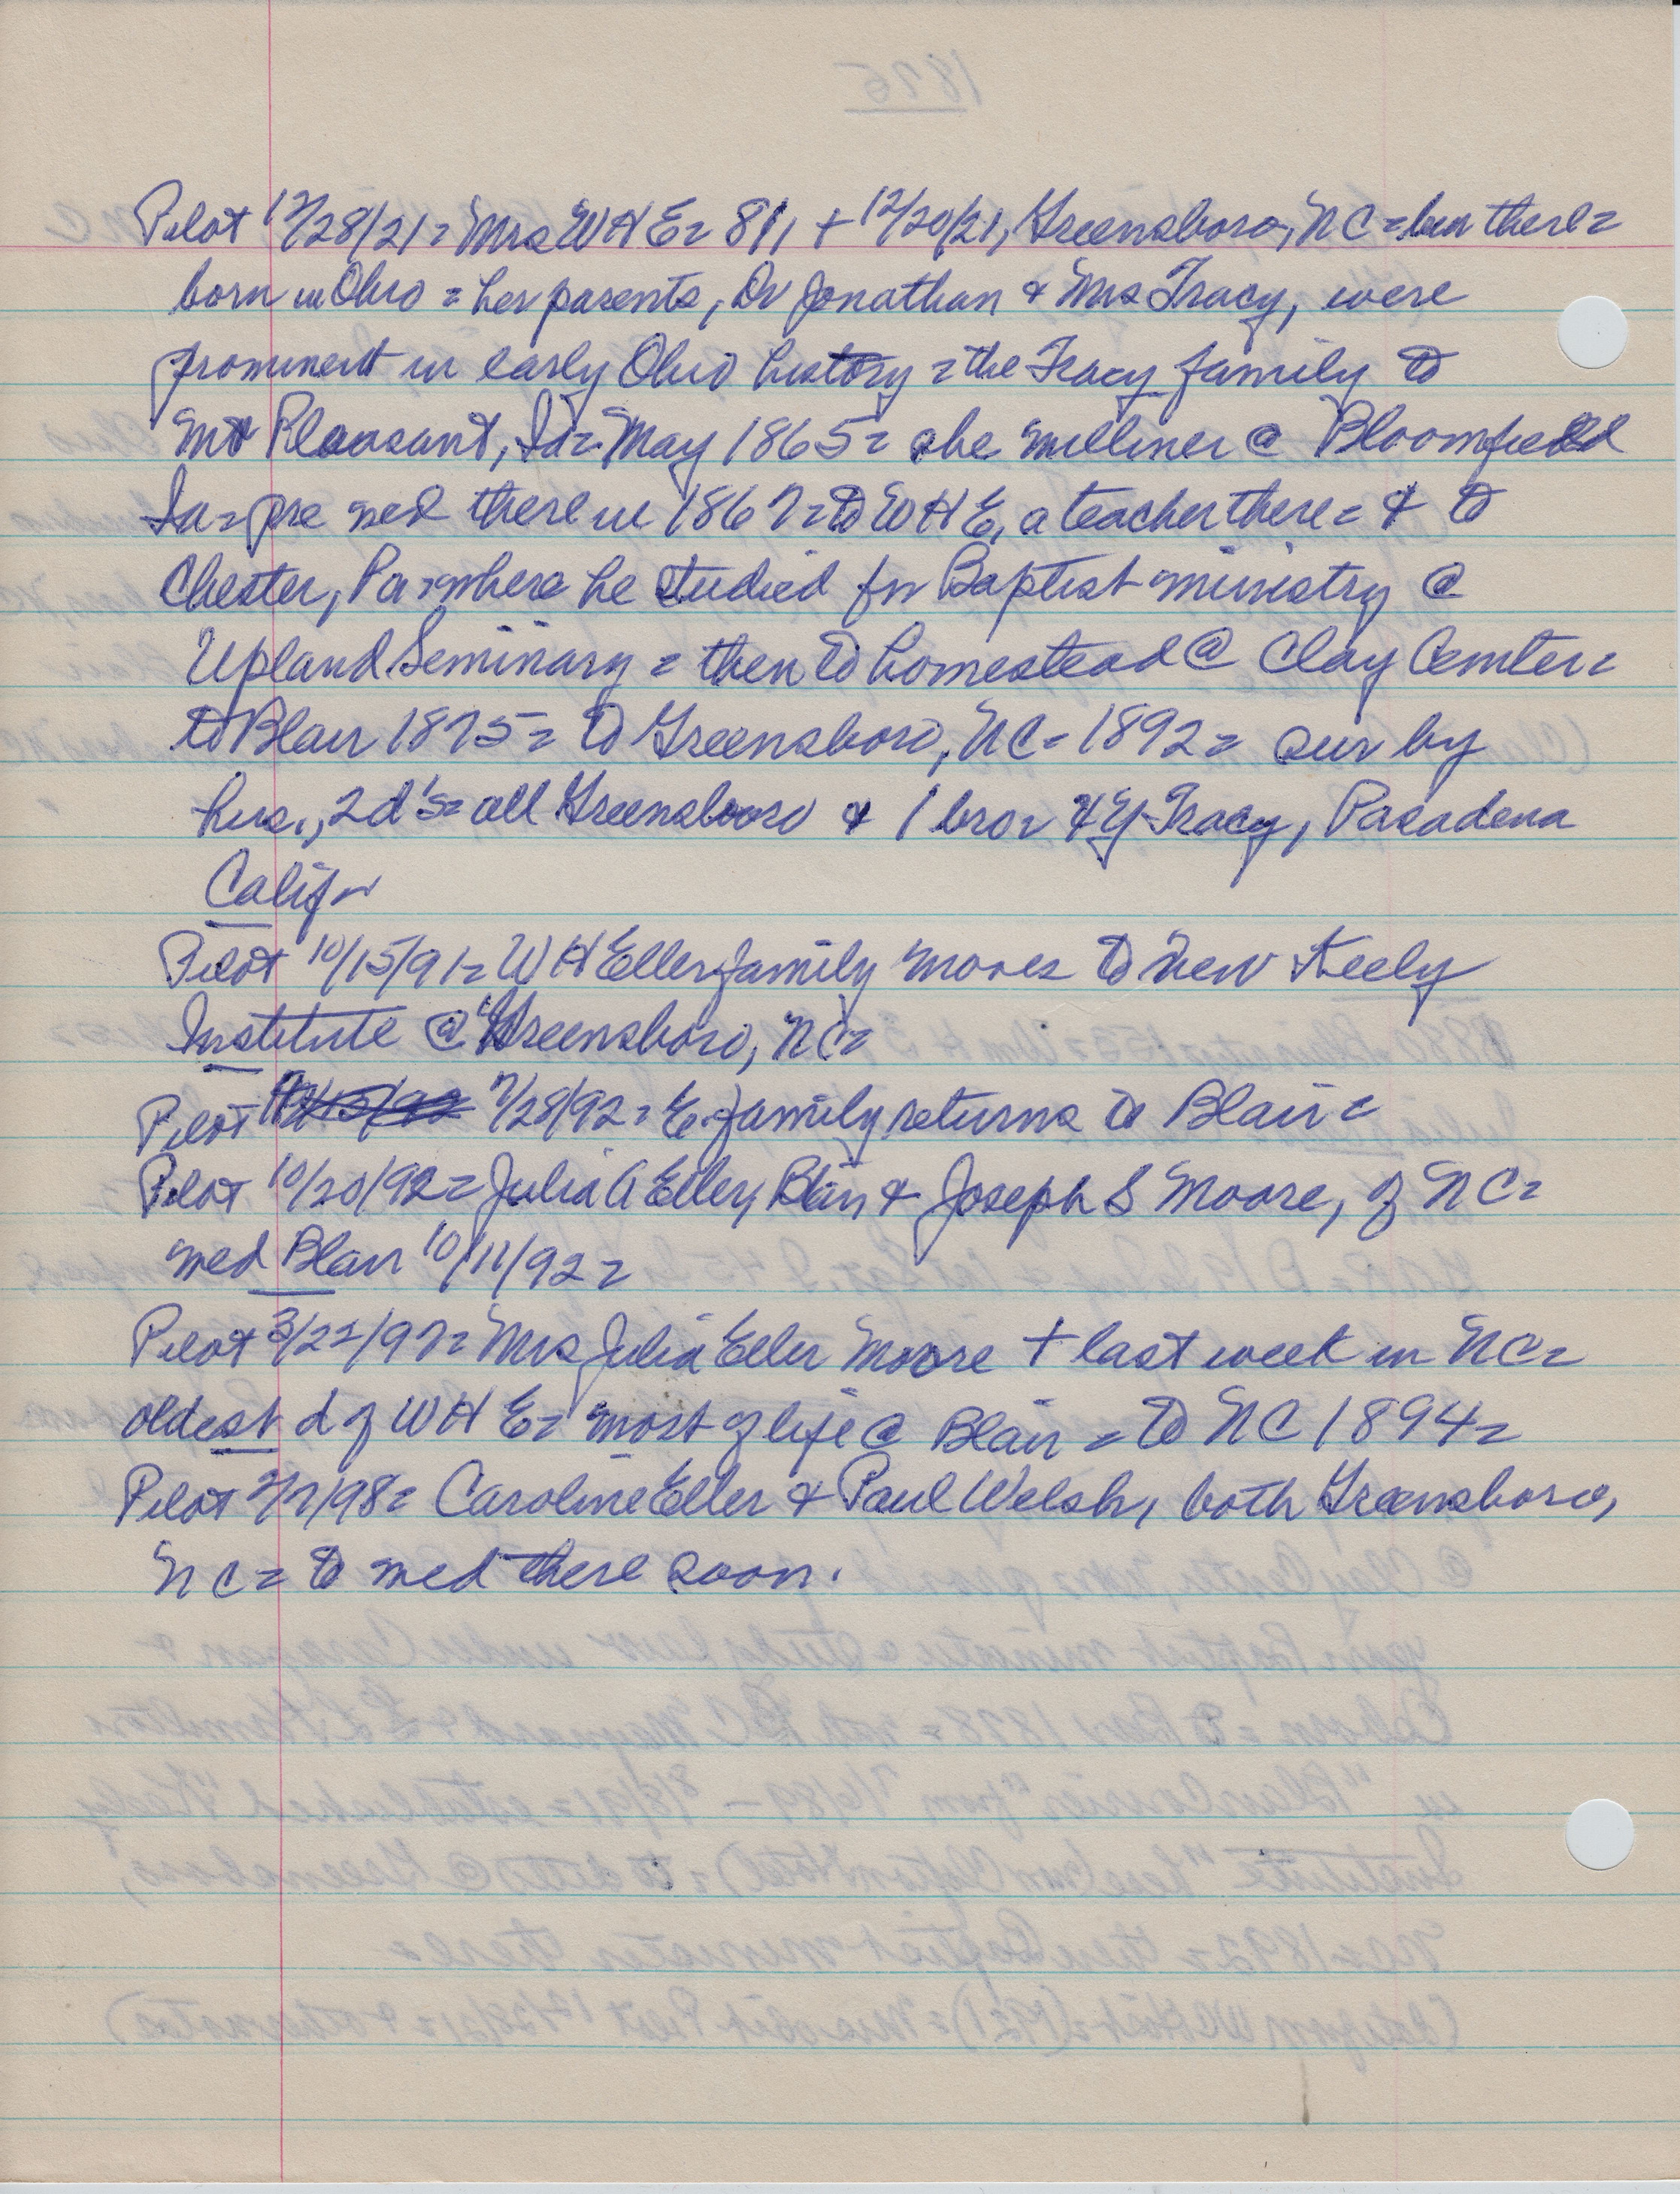 Pilot 12/28/21 = Mrs W H E = 81, + 12/20/21, Greensboro, NC = bur there =
born in Ohio = her parents, Dr Jonathan & Mrs Tracy, were
prominent in early Ohio history = the Tracy family to
Mt Pleasant, Ia = May 1865 = she milliner @ Bloomfield
Ia = she med there in 1867 = to W H E, a teacher there = & to
Chester, Pa = where he studied for Baptist ministry @
Upland Seminary = then to homestead @ Clay Center =
to Blair 1875 = to Greensboro, NC = 1892 = sur by
hus., 2 d's = all Greensboro & 1 bro = Tracy, Pasadena
Calif =
Pilot 10/15/91 = W H Eller family moves to new Keely
Institute @ Greensboro, NC =
Pilot 7/28/92 = E. family returns to Blair =
Pilot 10/20/92 = Julia A Eller, Blair & Joseph S Moore, of NC =
med Blair 10/11/92 =
Pilot 3/22/97 = Mrs Julia Eller Moore + last week in NC =
oldest d of W H E = most of life @ Blair = to NC 1894 =
Pilot 7/7/98 = Caroline Eller & Paul Welsh, both Greensboro,
NC = to med there soon.